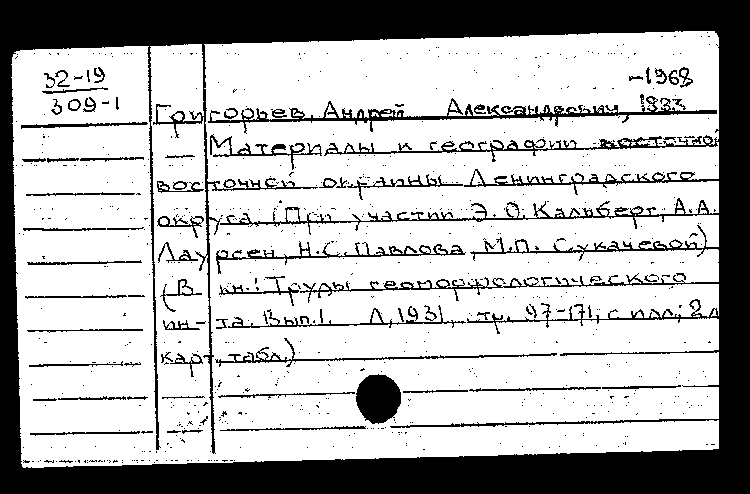 32-19
309-1
-1968
Григорьев, Андрей Александрович, 1883
— Материалы к географии восточной
восточной окраины Ленинградского
округа. (При участии Э.О. Кальберг, А.А.
Лаурсен, Н.С. Павлова, М.П. Сукачевой)
(В кн.: Труды геоморфологического
ин-та. Вып.1. Л, 1931, тр. 97-171, с илл; 2 л
карт, табл.)